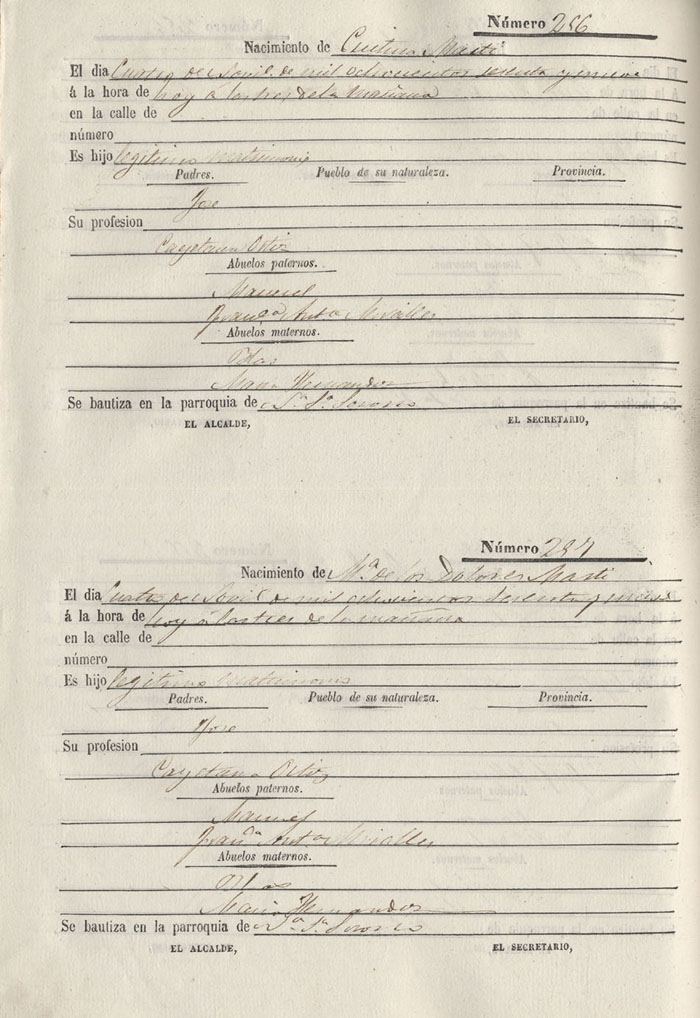 Número 256
Nacimiento de Cristina Marti
El dia Cuatro de Abril de mil ochocientos sesenta y nueve
á la hora de hoy á las tres de la mañana
en la calle de
número
Es hijo legitimo matrimonio
Padres. Pueblo de su naturaleza. Provincia.
Jose
Su profesion
Cayetana Ortiz
Abuelos paternos.
Manuel
Franca Anta Miralles
Abuelos maternos.
Blas
Maria Hernandez
Se bautiza en la parroquia de
EL ALCALDE, EL SECRETARIO,
Número 257
Nacimiento de Mª de los Dolores Marti
El dia Cuatro de Abril de mil ochocientos sesenta y nueve
á la hora de hoy á las tres de la mañana
en la calle de
número
Es hijo legitimo matrimonio
Padres. Pueblo de su naturaleza. Provincia.
Jose
Su profesion
Cayetana Ortiz
Abuelos paternos.
Manuel
Franca Anta Miralles
Abuelos maternos.
Blas
Maria Hernandez
Se bautiza en la parroquia de
EL ALCALDE, EL SECRETARIO,